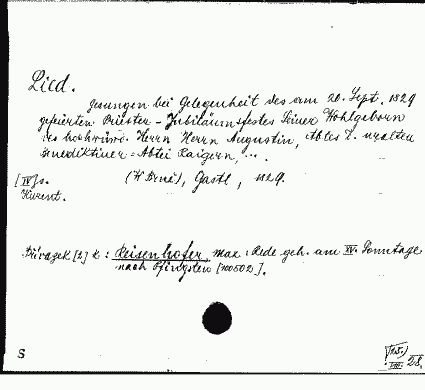 Lied.
gesungen bei Gelegenheit des am 20. Sept. 1829
gefeierten Priester-Jubiläumsfestes Seiner Wohlgeborn
des hochwürd. Herrn Herrn Augustin, Abtes d. uralten
Benediktiner-Abtei Raigern, ... .
(V Brně), Gastl, 1829.
[IV]s.
Kurent.
Přívazek [2] k: Reisenhofer, Max: Rede geh. am IV. Sonntage
nach Pfingsten [100502].
S
VIII 28.